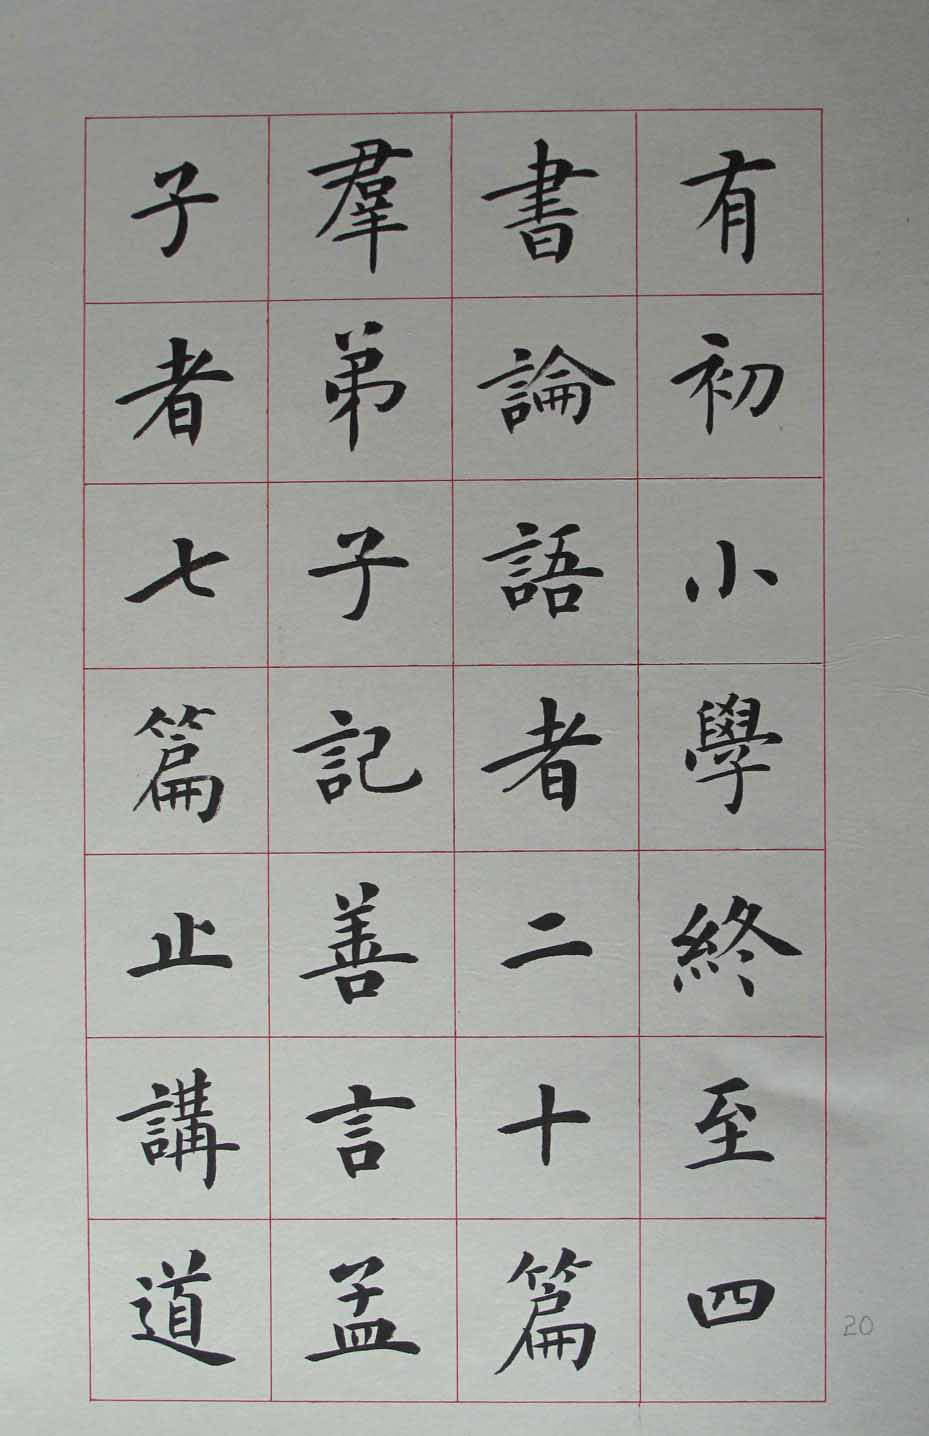 有初小學終至四
書論語者二十篇
羣弟子記善言孟
子者七篇止講道
20